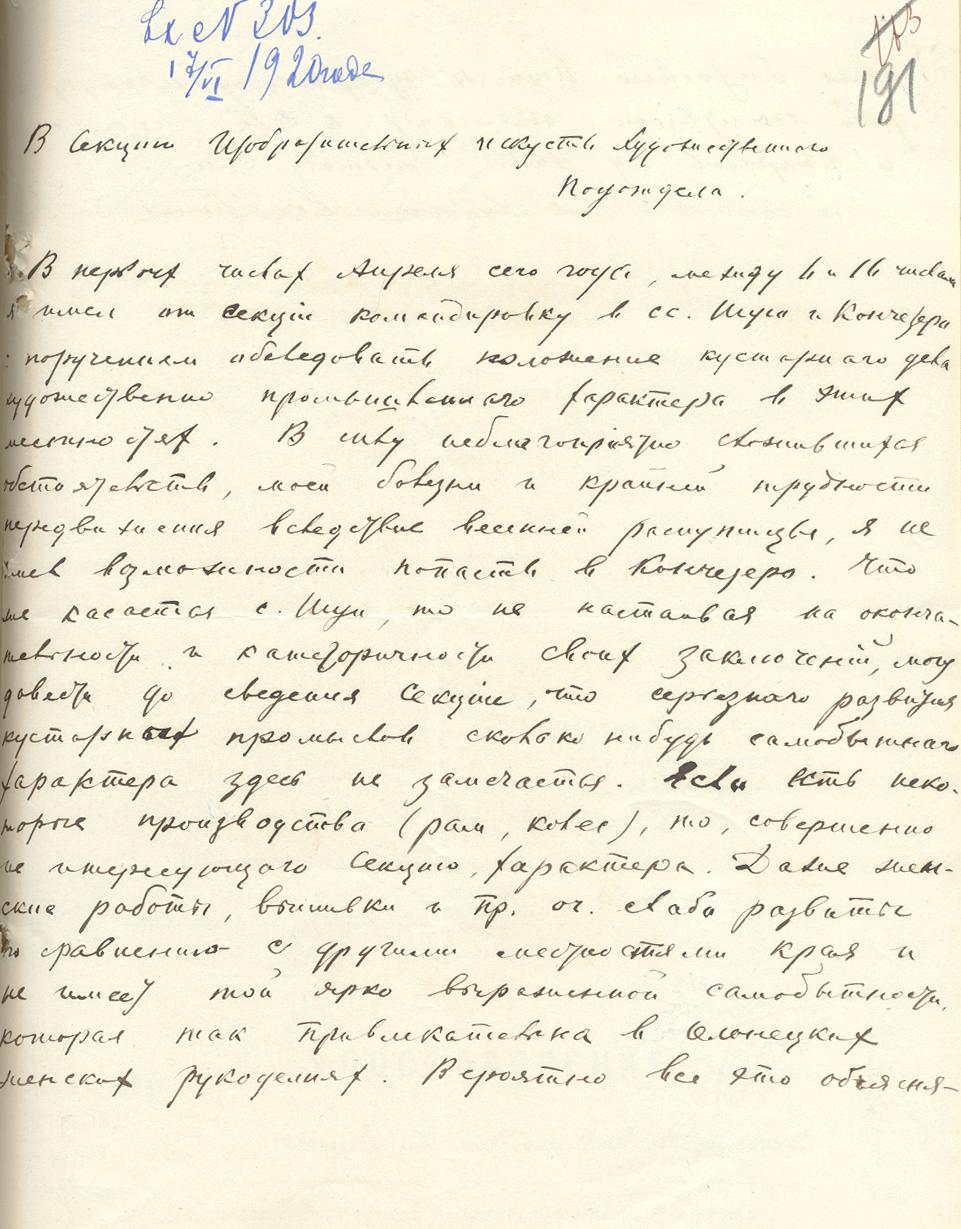 Вх № 303.
17/VI 1920 года
191
В Секцию Изобразительных искуств Художественного
Подотдела.
В первых числах Апреля сего года, между 6 и 16 числами
я имел от секціи командировку в сс. Шую и Кончезеро
с поручением обследовать положение кустарнаго дела
художественно промышленнаго характера в этих
местностях. В силу неблагоприятно сложившихся
обстоятельств, моей болезни и крайней трудности
передвижения вследствие весенней распутицы, я не
имел возможности попасть в Кончезеро. Что
же касается с. Шуи, то не настаивая на оконча-
тельности и категоричности своих заключений, могу
довести до сведения Секціи, что серьезнаго развития
кустарных промыслов сколько нибудь самобытнаго
характера здесь не замечается. Если есть неко-
торые производства (рам, колес), то, совершенно
не интересующаго Секцию, характера. Даже жен-
ские работы, вышивки и пр. оч. слабо развиты
по сравнению с другими местностями края и
не имеет той ярко выраженной самобытности,
которая так привлекательна в Олонецких
женских рукоделиях. Вероятно все это объясня-